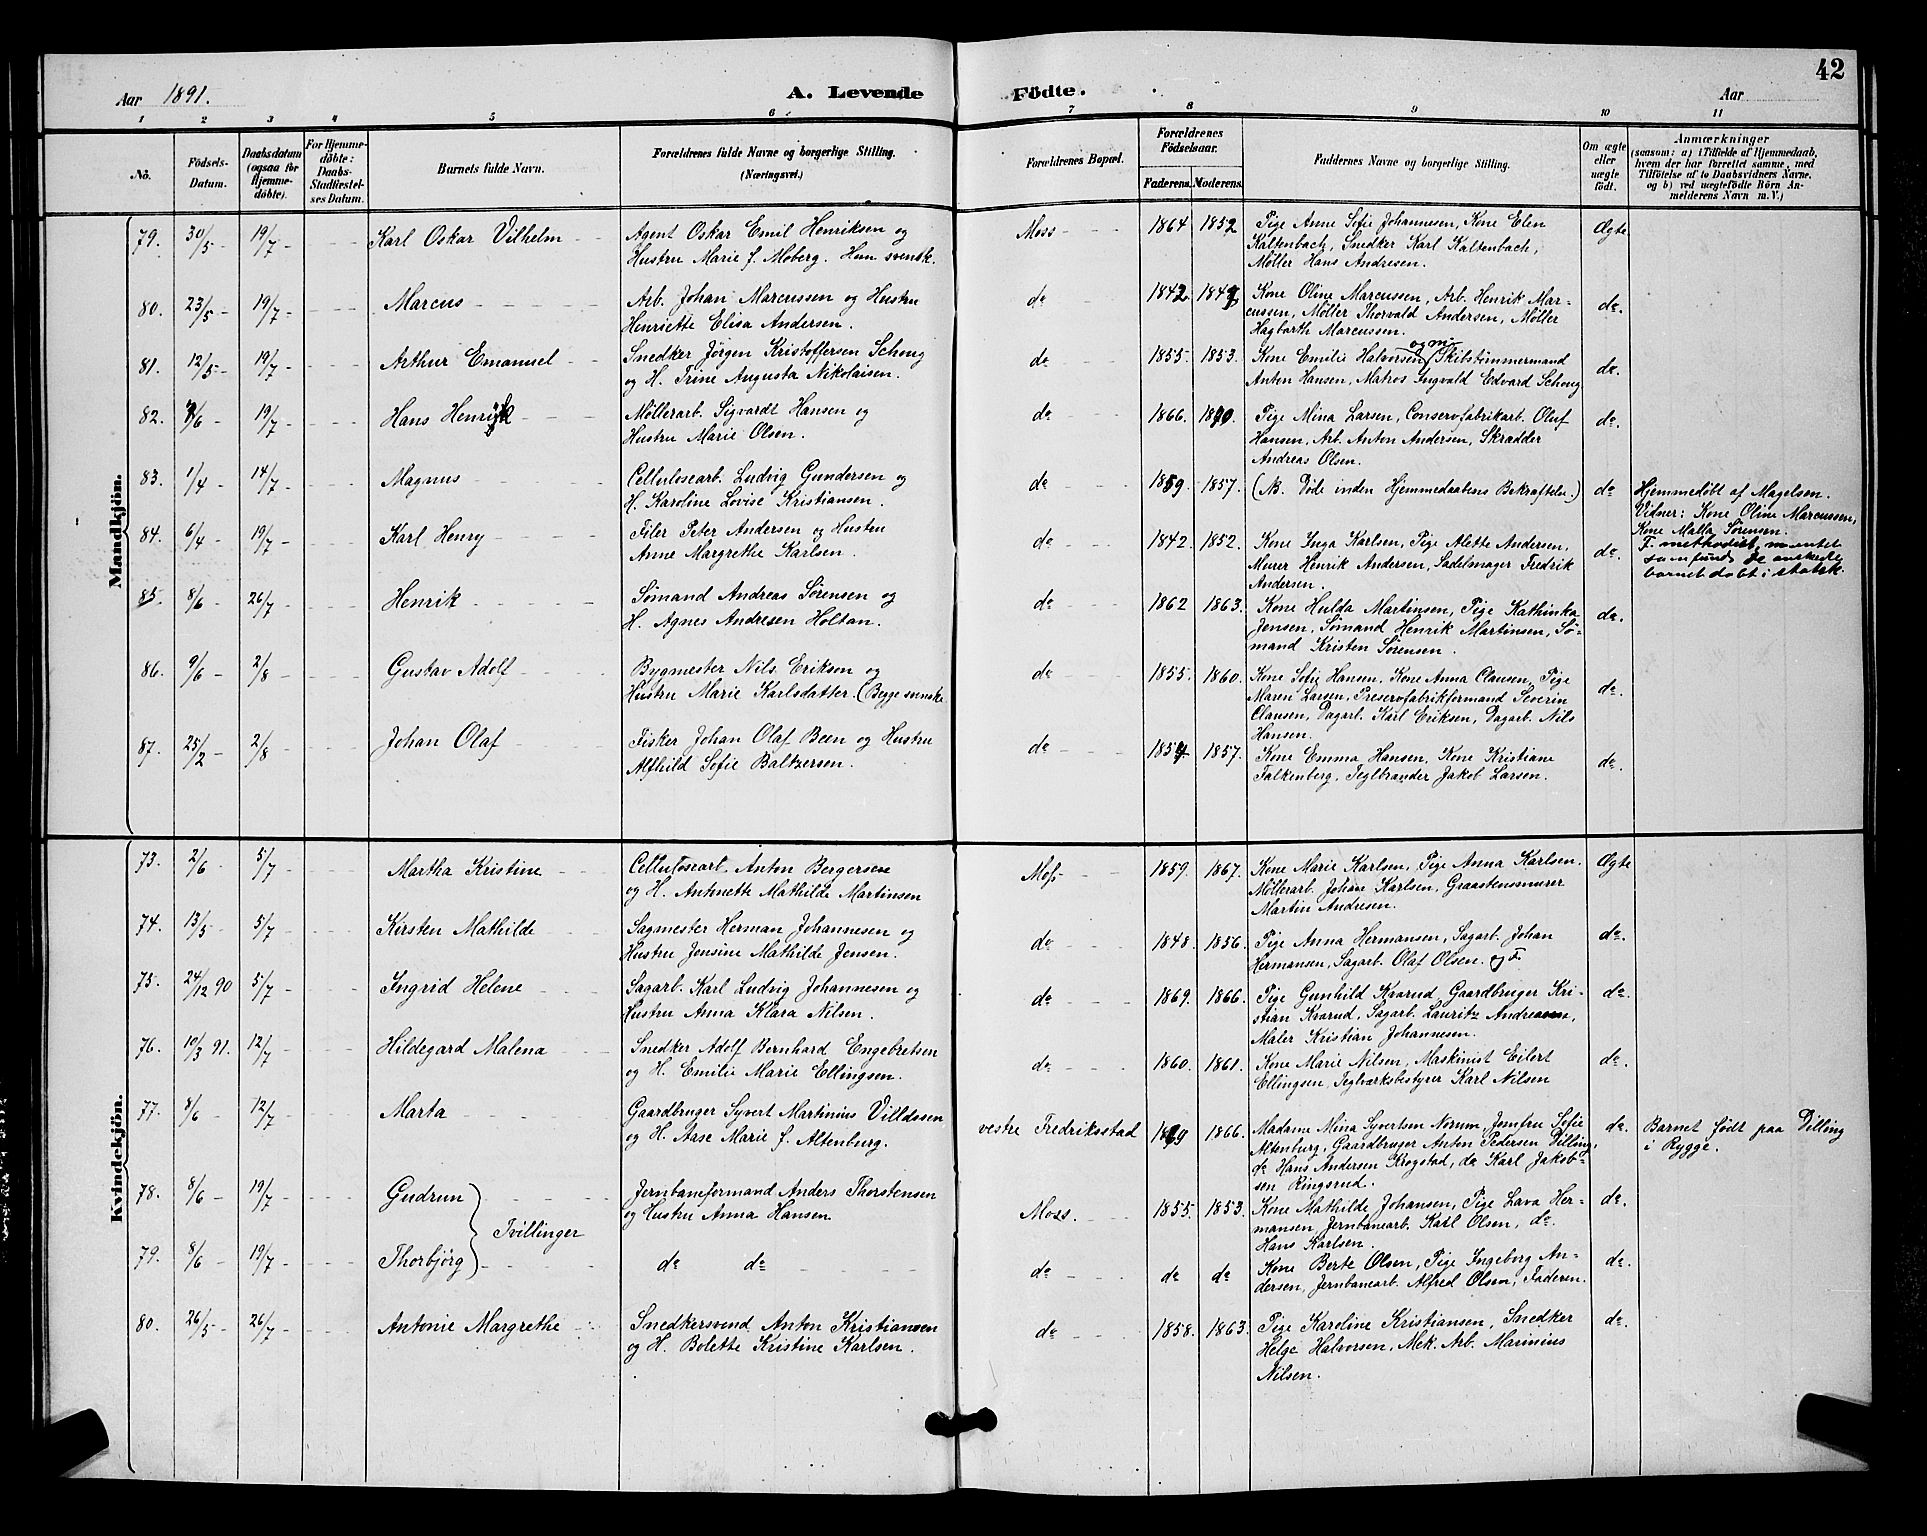 42
Aar 1891.
A. Levende
Födte.
Aar
1 2 3 4 5 6 7 8 9 10 11
No.
Födsels-Datum.
Daabsdatum (ogsaa for Hjemme-döbte).
For Hjemme-döbte: Daabs-Stadfæstel-ses Datum.
Barnets fulde Navn.
Forældrenes fulde Navne og borgerlige Stilling. (Næringsvei.)
Forældrenes Bopæl.
Forældrenes Födselsaar.
Faderens. Moderens.
Faddernes Navne og borgerlige Stilling.
Om ægte eller uægte födt.
Anmærkninger
(saasom: a) i Tilfælde af Hjemmedaab, hvem der har forrettet samme, med Tilföielse af to Daabsvidners Navne, og b) ved uægtefödte Börn An-melderens Navn m. V.)
Mandkjön.
79. 30/5 19/7 Karl Oskar Vilhelm
Agent Oskar Emil Henriksen og
Hustru Marie f. Moberg. Hun svensk.
Moss 1864 1852
Pige Anne Sofie Johannesen, Kone Elen
Kaltenbach, Snedker Karl Kaltenbach,
Møller Hans Andresen.
Ægte
80. 23/5 19/7 Marcus
Arb. Johan Marcussen og Hustru
Henriette Elisa Andersen.
do 1842
Kone Oline Marcussen, Arb. Henrik Mar-
cussen, Møller Thorvald Andersen, Møller
Hagbarth Marcussen.
do.
81. 12/5 19/7 Arthur Emanuel
Snedker Jörgen Kristoffersen Schoug
og H. Trine Augusta Nikolaisen.
do 1855. 1853.
Kone Emilie Halvorsen, Skibstömmermand
Anton Hansen, Matros Ingvald Edvard Schoug
do.
82. /6 19/7 Hans
Møllerarb. Sigvardt Hansen og
Hustru Marie Olsen.
do 1866. 1870.
Pige Mina Larsen, Conservefabrikarb. Oluf
Hansen, Arb. Anton Andersen, Skrædder
Andreas Olsen.
do.
83. 1/4 14/7 Magnus
Cellulosearb. Ludvig Gundersen og
H. Karoline Lovise Kristiansen.
do 1859. 1857.
(NB. Døde inden Hjemmedaabens Bekræftelse.)
do
Hjemmedøbt af Magelsen.
Vidner: Kone Oline Marcussen,
Kone Malla Sørensen.
84. 6/4 19/7 Karl Henry
Filer Peter Andersen og Hustru
Anne Margrethe Karlsen.
do 1842. 1852.
Kone Inga Karlsen, Pige Alette Andersen,
Murer Henrik Andersen, Sadelmager Fredrik
Andersen.
do.
F. methodist, m. untet
samfund, de ønskede
barnet døbt i statsk.
85. 8/6 26/7 Henrik
Sømand Andreas Sørensen og
H. Agnes Andresen Holtan.
do 1862 1863.
Kone Hulda Martinsen, Pige Kathinka
Jensen, Sømand Henrik Martinsen, Sø-
mand Kristen Sørensen.
do.
86. 9/6 2/8 Gustav Adolf
Bygmester Nils Eriksen og
Hustru Marie Karlsdatter. (Begge svenske
do 1855. 1860.
Kone Sofie Hansen, Kone Anna Clausen, Pige
Maren Larsen, Preservefabrikformand Severin
Clausen, Dagarb. Karl Eriksen, Dagarb. Nils
Hansen.
do.
87. 25/2 2/8 Johan Olaf
Fisker Johan Olaf Been og Hustru
Alfhild Sofie Baltzersen.
do 1857.
Kone Emma Hansen, Kone Kristiane
Falkenberg, Teglbrænder Jakob Larsen.
do.
Kvindekjön.
73. 2/6 5/7 Martha Kristine
Cellulosearb. Anton Bergersen
og H. Antonette Mathilde Martinsen
Moss 1859. 1867.
Kone Marie Karlsen, Pige Anna Karlsen.
Møllerarb. Johan Karlsen, Graastensmurer
Martin Andresen.
Ægte
74. 13/5 5/7 Kirsten Mathilde
Sagmester Herman Johannesen og
Hustru Jensine Mathilde Jensen.
do 1848. 1856.
Pige Anna Hermansen, Sagarb. Johan
Hermansen, Sagarb. Olaf Olsen. og F.
do.
75. 24/12 90 5/7 Ingrid Helene
Sagarb. Karl Ludvig Johannesen og
Hustru Anna Klara Nilsen.
do 1869. 1866.
Pige Gunhild Krarud, Gaardbruger Kri-
stian Krarud, Sagarb. Lauritz Andresen,
Maler Kristian Johannesen.
do.
76. 10/3 91. 12/7 Hildegard Malena
Snedker Adolf Bernhard Engebretsen
og H. Emilie Marie Ellingsen.
do 1860. 1861.
Kone Marie Nilsen, Maskinist Eilert
Ellingsen, Teglværksbestyrer Karl Nilsen
do.
77. 8/6 12/7 Marta
Gaardbruger Syvert Martinius Villdssen
og H. Aase Marie f. Altenburg.
vestre Fredriksstad 1866.
Madame Mina Syvertsen Norum, Jomfru Sofie
Altenburg, Gaardbruger Anton Pedersen Dilling,
do Hans Andersen Krogstad, do Karl Jakob-
sen Ringsrud.
do.
Barnet født paa Dilling
i Rygge.
78. 8/6 19/7 Gudrun
Tvillinger
Jernbaneformand Anders Thorstensen
og Hustru Anna Hansen
Moss. 1855. 1853.
Kone Mathilde Johansen, Pige Lava Her-
mansen, Jernbanearb. Karl Olsen, do.
Hans Karlsen.
do.
79. 8/6 19/7 Thorbjörg
do do
do do do
Kone Berte Olsen, Pige Ingeborg An-
dersen, Jernbanearb. Alfred Olsen, Faderen.
do.
80. 26/5 26/7 Antonie Margrethe
Snedkersvend Anton Kristiansen
og H. Bolette Kristine Karlsen.
do 1858. 1863.
Pige Karoline Kristiansen, Snedker
Helge Halvorsen, Mek. Arb. Marinius
Nilsen.
do.